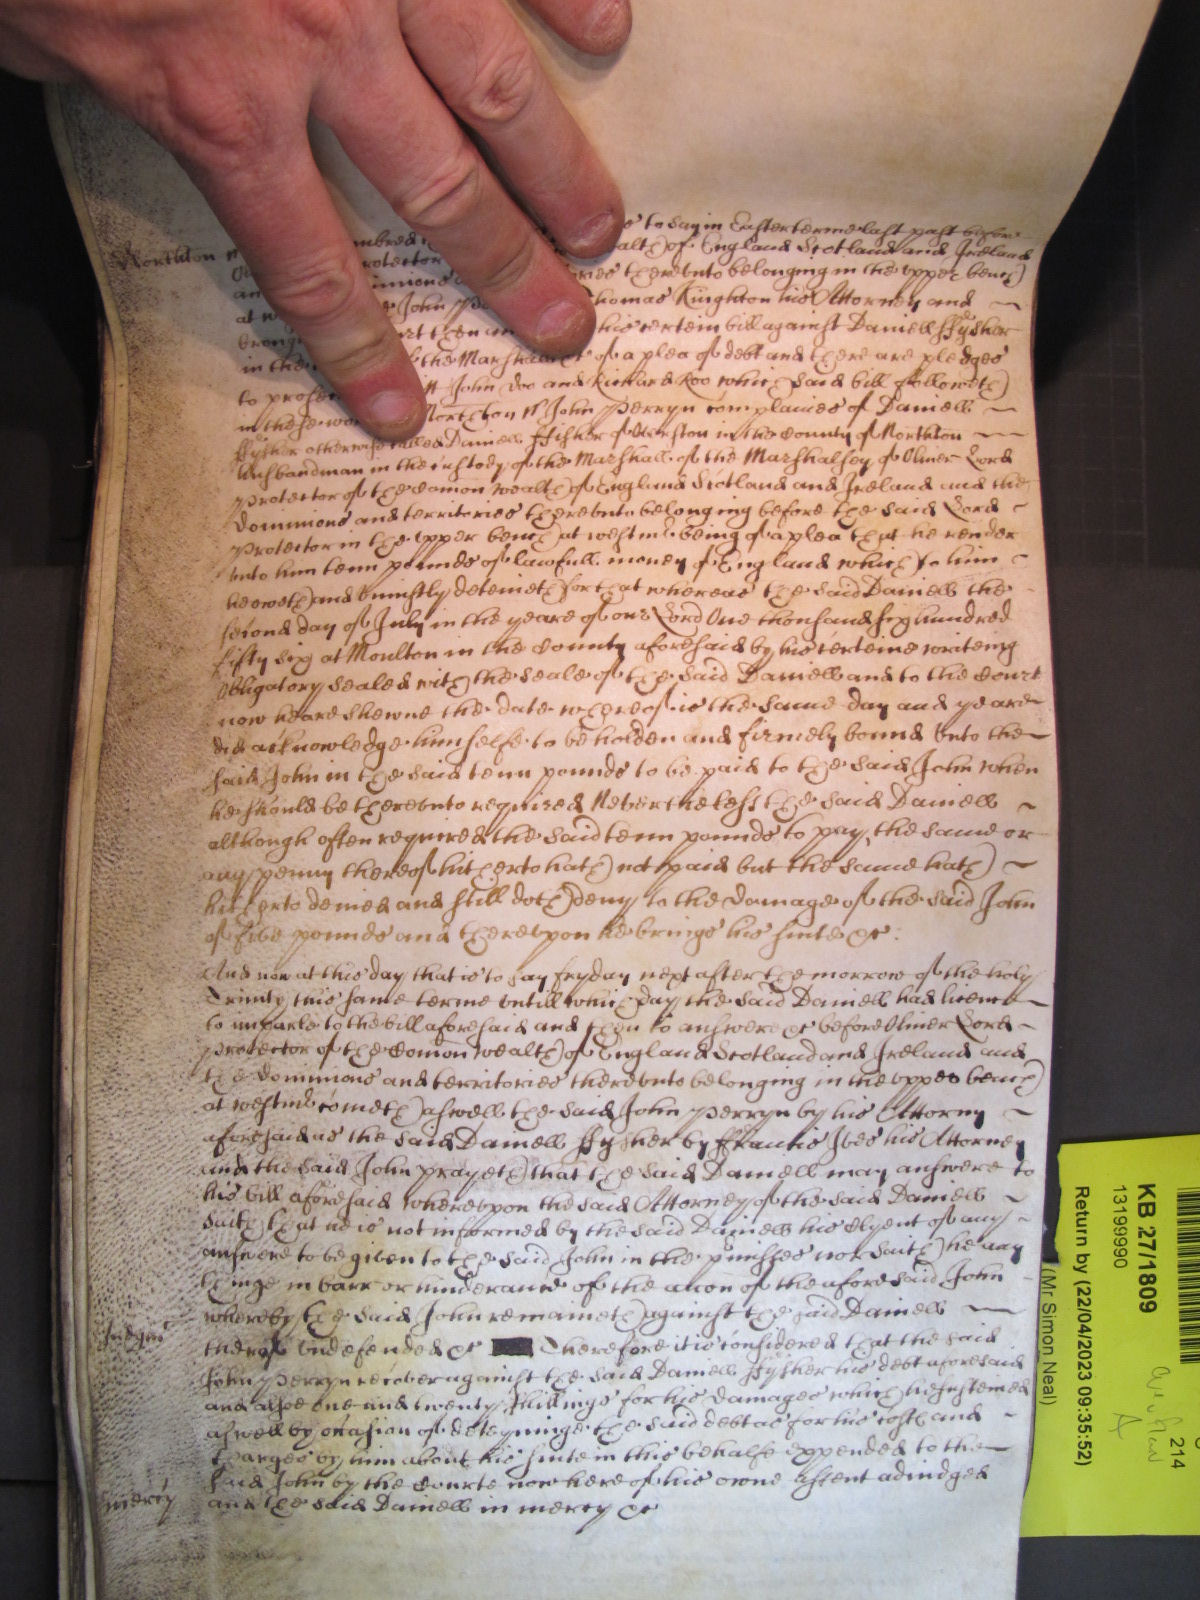 Northton
to say in Easter terme last past before
of England Scotland and Ireland
thereunto belonging in the upper bench
at John Thomas Knighton his Attorney and
his certein bill against Daniell ffysher
in the the Marshall of a plea of debt and there are pledges
to John Doo and Richard Roo which said bill followeth
in these Northton ss John Perryn complaines of Daniell
ffysher otherwise called Daniell ffisher of in the County of Northton
husbandman in the custody of the Marshall of the Marshalsey of Oliver Lord
Protector of the Comon wealth of England Scotland and Ireland and the
Dominions and territories thereunto belonging before the said Lord
Protector in the upper bench at westmr being of a plea that he render
unto him tenn pounds of lawfull money of England which to him
he oweth and uniustly deteineth for that whereas the said Daniell the
second day of July in the yeare of our Lord One thousand six hundred
fifty six at Moulton in the County aforesaid by his certeine writeing
obligatory sealed with the seale of the said Daniell and to the Court
now heare shewne the date whereof is the same day and yeare
did acknowledge himselfe to be holden and firmely bound unto the
said John in the said tenn pounds to be paid to the said John when
he should be thereunto required Neverthelesse the said Daniell
although often required the said tenn pounds to pay the same or
any penny thereof hitherto hath not paid but the same hath
hitherto denied and still doth deny to the damage of the said John
of five pounds and thereupon he brings his suite &c
And now at this day that is to say fryday next after the morrow of the holy
Trinity this same terme untill which day the said Daniell had licence
to imparle to the bill aforesaid and then to answere &c before Oliver Lord
Protector of the Comon wealth of England Scotland and Ireland and
the dominions and territories thereunto belonging in the upper bench
at westmr cometh aswell the said John Perryn by his Attorny
aforesaid as the said Daniell ffysher by ffrancis Ives his Attorney
and the said John prayeth that the said Daniell may answere to
his bill aforesaid whereupon the said Attorney of the said Daniell
saith that he is not informed by the said Daniell his Clyent of any
answere to be given to the said John in the p'misses nor saith he any
thinge in barr or hinderance of the accon of the aforesaid John
whereby the said John remaineth against the said Daniell
Judgmt
thereof undefended &c Therefore it is considered that the said
John Perryn recover against the said Daniell ffysher his debt aforesaid
and alsoe one and twenty shillings for his damages which he susteined
aswell by occasion of deteyninge the said debt as for his costs and
charges by him about his suite in this behalfe expended to the
said John by the Courte now here of his owne assent adiudged
mercy
and the said Daniell in mercy &c
KB 27/1809
13199990
Return by (22/04/2023 09:35:52)
(Mr Simon Neal)
214